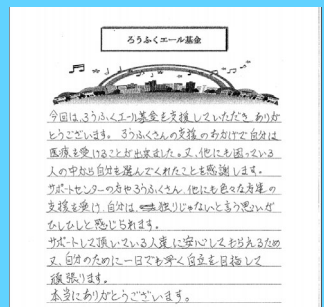 ろうふくエール基金
今回は、ろうふくエール基金を支援していただき ありが
とうございます。 ろうふくさんの支援のおかげで自分は
医療を受けることが出来ました。又、他にも困っている
人の中から自分を選んでくれたことも感謝します。
サポートセンターの方やろうふくさん、他にも色々な方達の
支援を受け、自分は、独りじゃないと言う思いが
ひしひしと感じられます。
サポートして頂いている人達に安心してもらえるため
又、自分のために一日でも早く自立を目指して
頑張ります。
本当にありがとうございます。